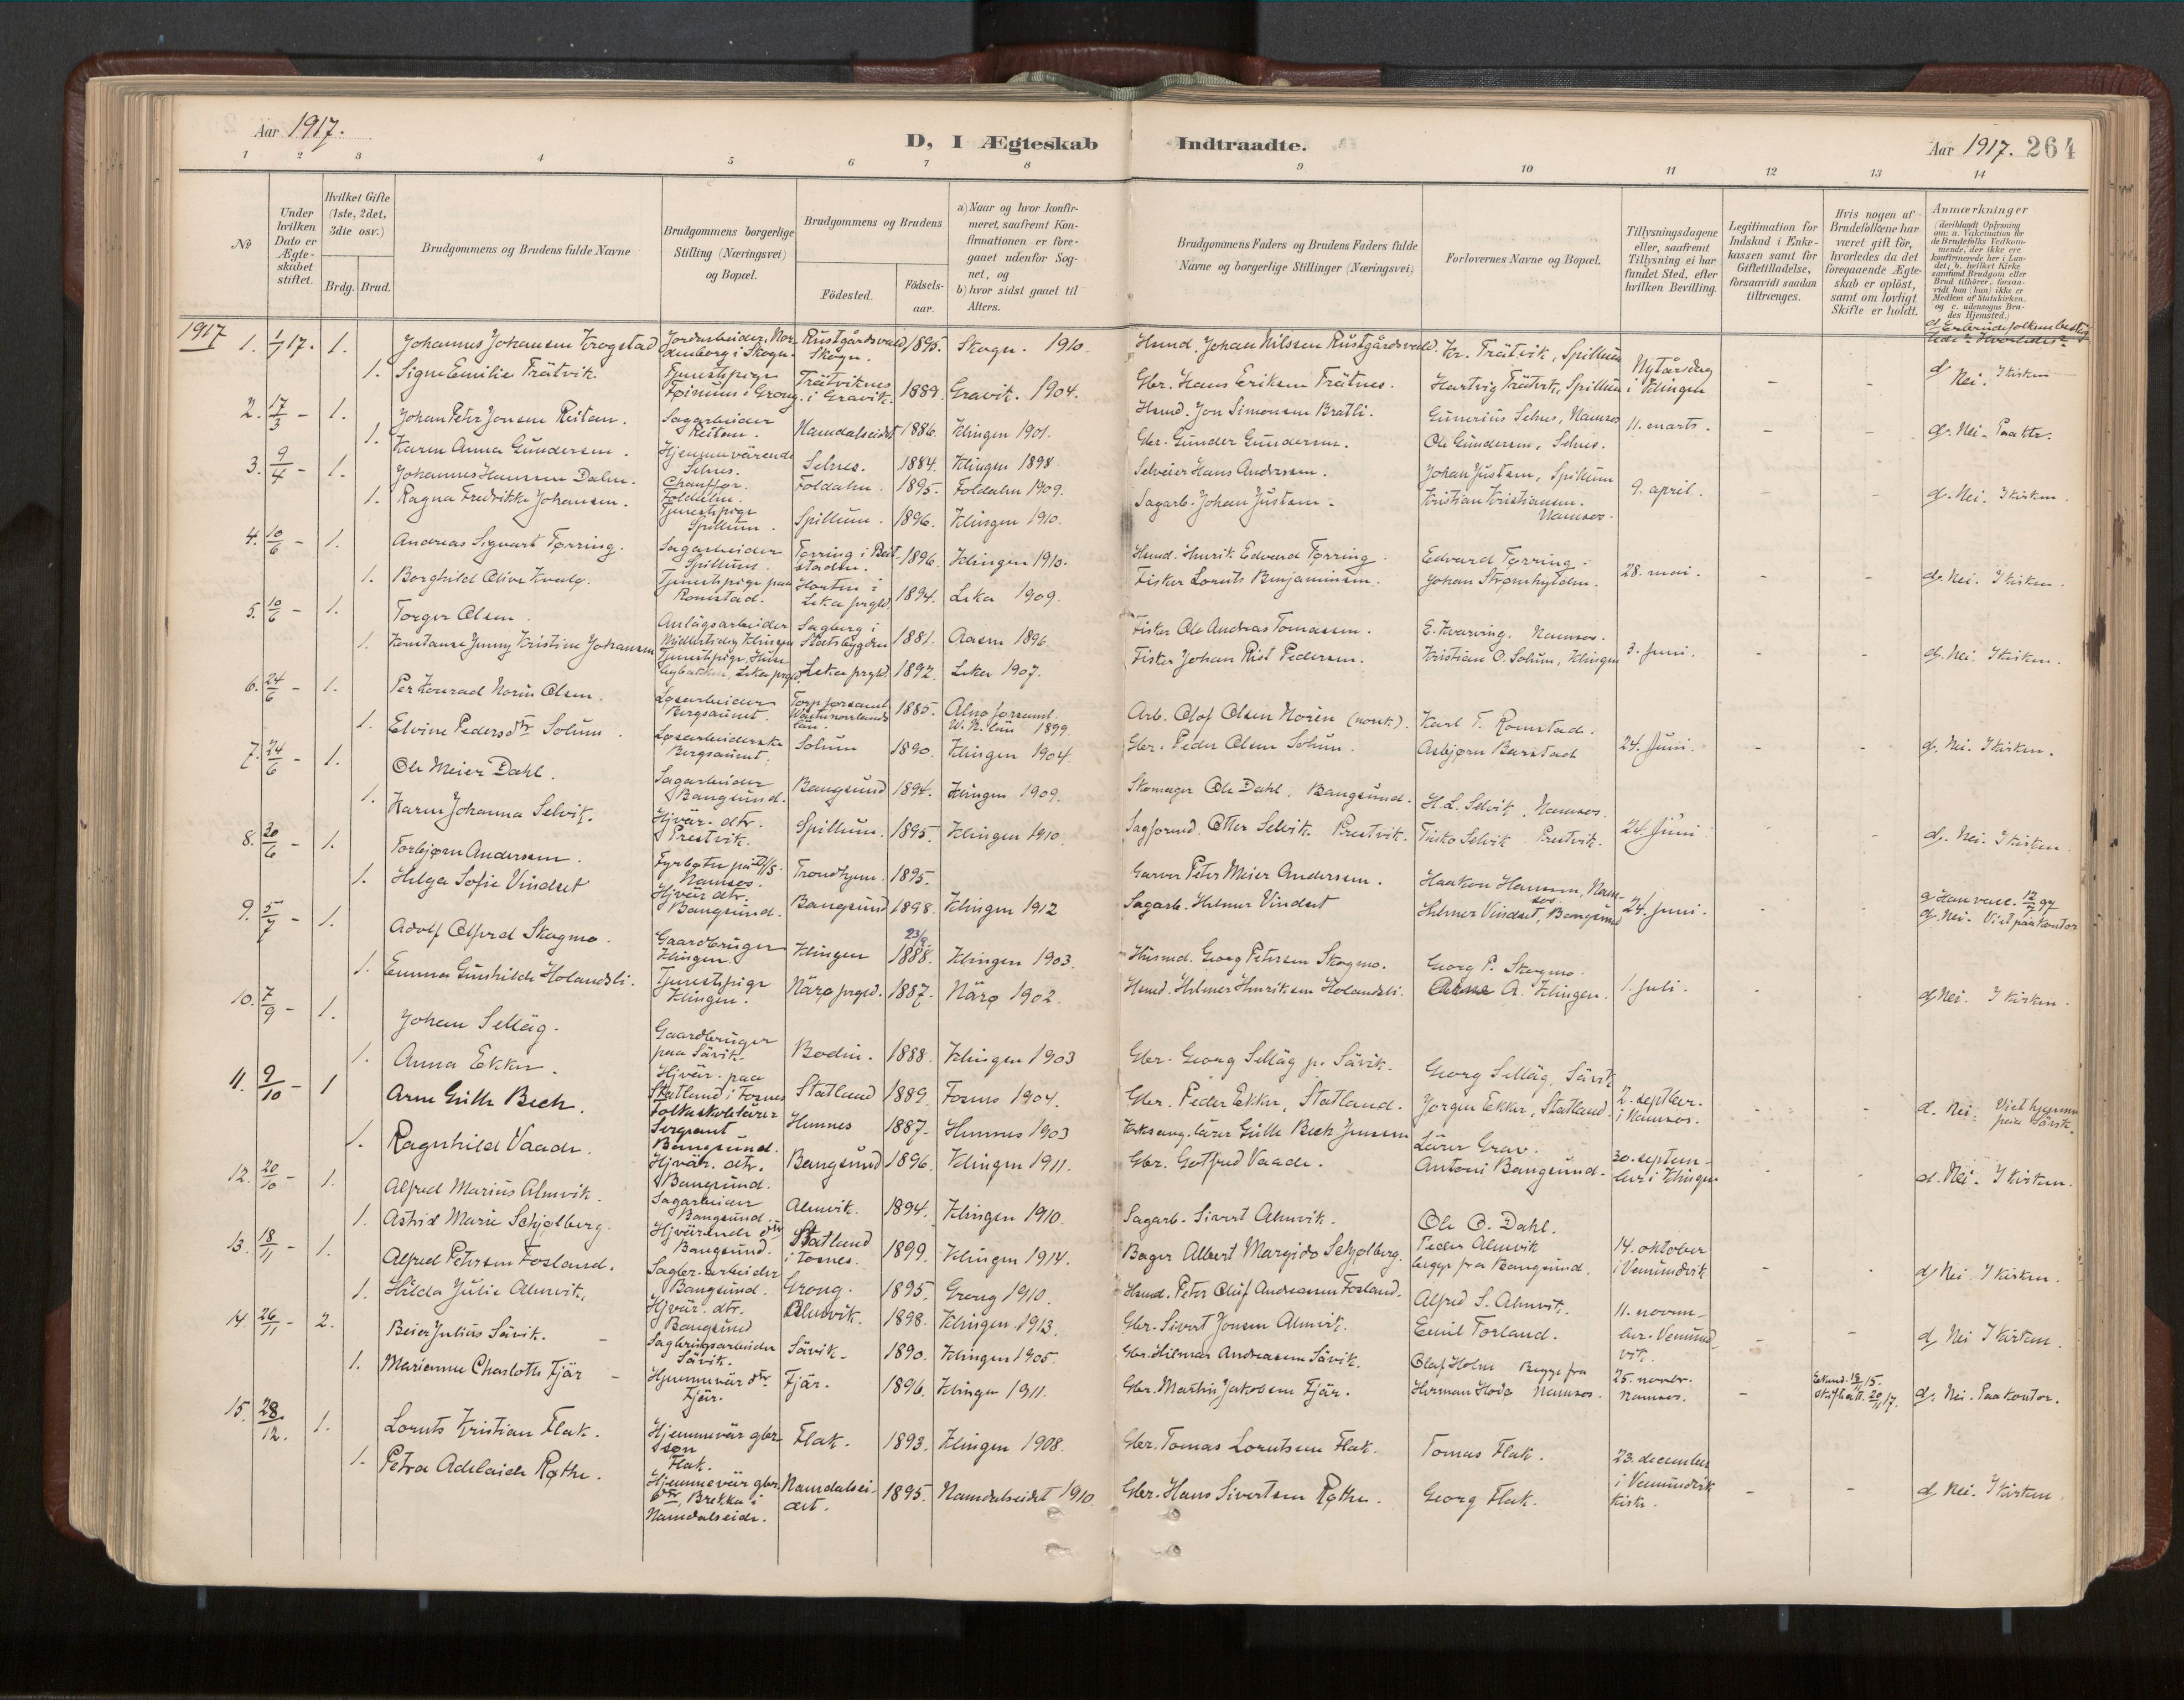 Aar 1917.
D, I Ægteskab
Indtraadte.
Aar 1917. 264
1 2 3 4 5 6 7 8 9 10 11 12 13 14
No
Under hvilken Dato er Ægteskabet stiftet.
Hvilket Gifte (1ste, 2det, 3die osv.)
Brdg. Brud.
Brudgommens og Brudens fulde Navne
Brudgommens borgerlige Stilling (Næringsvei) og Bopæl.
Brudgommens og Brudens
Födested.
Födsels-aar.
a) Naar og hvor konfirmeret, saafremt Konfirmationen er foregaaet udenfor Sognet, og
b) hvor sidst gaaet til Alters.
Brudgommens Faders og Brudens Faders fulde Navne og borgerlige Stillinger (Næringsvei)
Forlovernes Navne og Bopæl.
Tillysningsdagene eller, saafremt Tillysning ei har fundet Sted, efter hvilken Bevilling.
Legitimation for Indskud i Enkekassen samt for Giftetilladelse, forsaavidt saadan tiltrænges.
Hvis nogen af Brudefolkene har været gift för, hvorledes da det foregaaende Ægteskab er oplöst, samt om lovligt Skifte er holdt.
Anmærkninger
1917
1. 1/1 17. 1. Johannes Johansen Krogstad Jordarbeider, Nordenborg i Skogn. Rustgårdsvald Skogn. 1895. Skogn. 1910. Husmd. Johan Nilssen Rustgårdsvald. Kr. Trätvik, Spillum Nytårsdag i Klingen
1. Signe Emilie Trätvik. Tjenestepige Trätviknes i Gravik. 1889. Gravik. 1904. Gbr. Hans Eriksen Trätnes. Hartvig Trätvik, Spillum d Nei. I kirken
2. 17/3 - 1. Johan Peter Jonsen Reitan. Sagarbeider Reitan. Namdalseidet 1886. Klingen 1901. Husmd. Jon Simonsen Bratli. Gunerius Selnes, Namsos 11. marts.
1. Karen Anna Gundersen. Hjemmeværende Selnes. Selnes. 1884. Klingen 1898 Gbr. Gunder Gundersen. Ole Gundersen, Selnes. d. Nei.
3. 9/4 - 1. Johannes Hansen Dalen. Chauffør. Foldalen. Foldalen. 1895. Foldalen 1909. Selveier Hans Anderssen. Johan Justsen, Spillum 9. april.
1. Ragna Fredrikke Johansen. Tjenestepige Spillum. Spillum. 1896. Klingen 1910. Sagarb. Johan Justsen. Kristian Kristiansen. Namsos. d. Nei. I kirken.
4. 10/6 - 1. Andreas Sigvart Tørring. Sagarbeider Spillum. Tørring i Beitstaden. 1896. Klingen 1910. Husmd. Henrik Edvard Tørring. Edvard Tørring. 28. mai.
1. Borghild Olive Kvalø. Tjenestepige paa Romstad. Horten i Leka prgld. 1894. Leka 1909. Fisker Lorents Benjaminsen. Johan Strømhylden. d. Nei. I kirken.
5. 10/6 - 1. Torger Olsen. Anlägsarbeider Midlertidig Klingen Sagberg i Statsbygden 1881. Aasen 1896. Fisker Ole Andreas Tomassen. E. Kvarving, Namsos. 3. juni.
1. Konstanse Jenny Kristine Johansen Tjenestepige, Leka prgld. Leka prgld. 1892. Leka 1907. Fisker Johan Rist Pedersen. Kristian O. Solum, Klingen d. Nei. I kirken.
6. 24/6 - 1. Per Konrad Norin Olsen. Løsarbeider Bergsaunet. Torp forsaml. Västernorrlands län. 1885. Alnø forsaml. W. N. län 1899 Arb. Olof Olsen Norén (norsk). Karl T. Romstad. 24. Juni.
1. Elvine Pedersdtr Solum. Løsarbeiderske Bergsaunet. Solum 1890. Klingen 1904. Gbr. Peder Olsen Solum. Asbjørn Barstad d. Nei. I kirken.
7. 24/6 - 1. Ole Meier Dahl. Sagarbeider Bangsund. Bangsund 1894. Klingen 1909. Skomager Ole Dahl, Bangsund. H. L. Selvik, Namsos. 24. Juni
1. Karen Johanna Selvik. Hjvär. dtr. Prestvik. Spillum. 1895. Klingen 1910. Sagformd. Otter Selvik Prestvik. Selvik Prestvik. d. Nei. I kirken.
8. 30/6 - 1. Torbjørn Andersen. Fyrbøter på D/S Namsos. Trondhjem. 1895. Garver Peter Meier Andersen. Haakon Hansen, Namsos 24. Juni.
1. Helga Sofie Vindset Hjvär dtr. Bangsund. Bangsund 1898. Klingen 1912 Sagarb. Helmer Vindset Helmer Vindset, Bangsund d. Nei. Viet på kontor
9. 5/7 - 1. Adolf Alfred Skogmo. Gaardbruger Klingen. Klingen 23/9 1888. Klingen 1903. Husmd. Georg Petersen Skogmo. Georg P. Skogmo. 1. Juli.
1. Emma Gunhilde Holandsli. Tjenestepige Klingen. Närø prgld. 1887. Närø 1902. Husmd. Helmer Henriksen Holandsli. A. Klingen. d. Nei. I kirken.
10. 7/9 - 1. Johan Selläg. Gaardbruger paa Sävik. Bodin. 1888. Klingen 1903 Gbr. Georg Selläg p. Sävik. Georg Selläg, Sävik 2. septbr. i Namsos.
1. Anna Ekker. Hjvär. paa Statland i Fosnes Statland 1889. Fosnes 1904. Gbr. Peder Ekker, Statland. Jørgen Ekker, Statland. d. Nei. Viet hjemme paa Sävik.
11. 9/10 - 1 Arne Gülle Bech. Folkeskolelärer Sergeant Bangsund. Hemnes 1887. Hemnes 1903 Kirkesang. lärer Gülle Bech Jenssen Lärer Grav. 30. september i Klingen
1. Ragnhild Vaade. Hjvär. dtr. Bangsund. Bangsund 1896. Klingen 1911. Gbr. Gotfred Vaade. Antoni Bangsund. d. Nei. I kirken.
12. 20/10 - 1. Alfred Marius Almvik. Sagarbeider Bangsund. Almvik. 1894. Klingen 1910. Sagarb. Sivert Almvik. Ole O. Dahl. 14. oktober i Vemundvik
1. Astrid Marie Schjølberg. Hjvärende dtr Bangsund. Statland i Fosnes. 1899. Klingen 1914. Bager Albert Margido Schjølberg. Peder Almvik begge fra Bangsund. d. Nei I kirken.
13. 18/11 - 1. Alfred Petersen Fosland. Sagbr. arbeider Bangsund. Grong. 1895. Grong 1910. Husmd. Peter Oluf Andreassen Fosland. Alfred S. Almvik. 11. november. Vemundvik.
1. Hilda Julie Almvik. Hjvär. dtr. Bangsund Almvik. 1898. Klingen 1913. Gbr. Sivert Jonsen Almvik. Emil Forland. d. Nei I kirken.
14. 26/11 - 2. Beier Julius Sävik. Sagbrugsarbeider Sävik. Sävik. 1890. Klingen 1905. Gbr. Hilmar Andreassen Sävik. Olaf Holm Begge fra 25. novbr. Namsos.
1. Marianne Charlotte Fjär Hjemmevär dtr. Fjär. Fjär. 1896. Klingen 1911. Gbr. Martin Jakobsen Fjär. Herman Hodø Namsos. d. Nei. Paa kontor.
15. 28/12. 1. Lorents Kristian Flak. Hjemmevär gbr. søn Flak. Flak. 1893. Klingen 1908. Gbr. Tomas Lorentsen Flak. Tomas Flak. 23. december i Vemundvik kirke.
1. Petra Adelaide Røthe. Hjemmevär gbr. dtr, Brekka i Namdalseide. Namdalseidet. 1895. Namdalseidet 1910. Gbr. Hans Sivertsen Røthe. Georg Flak. d. Nei. I kirken